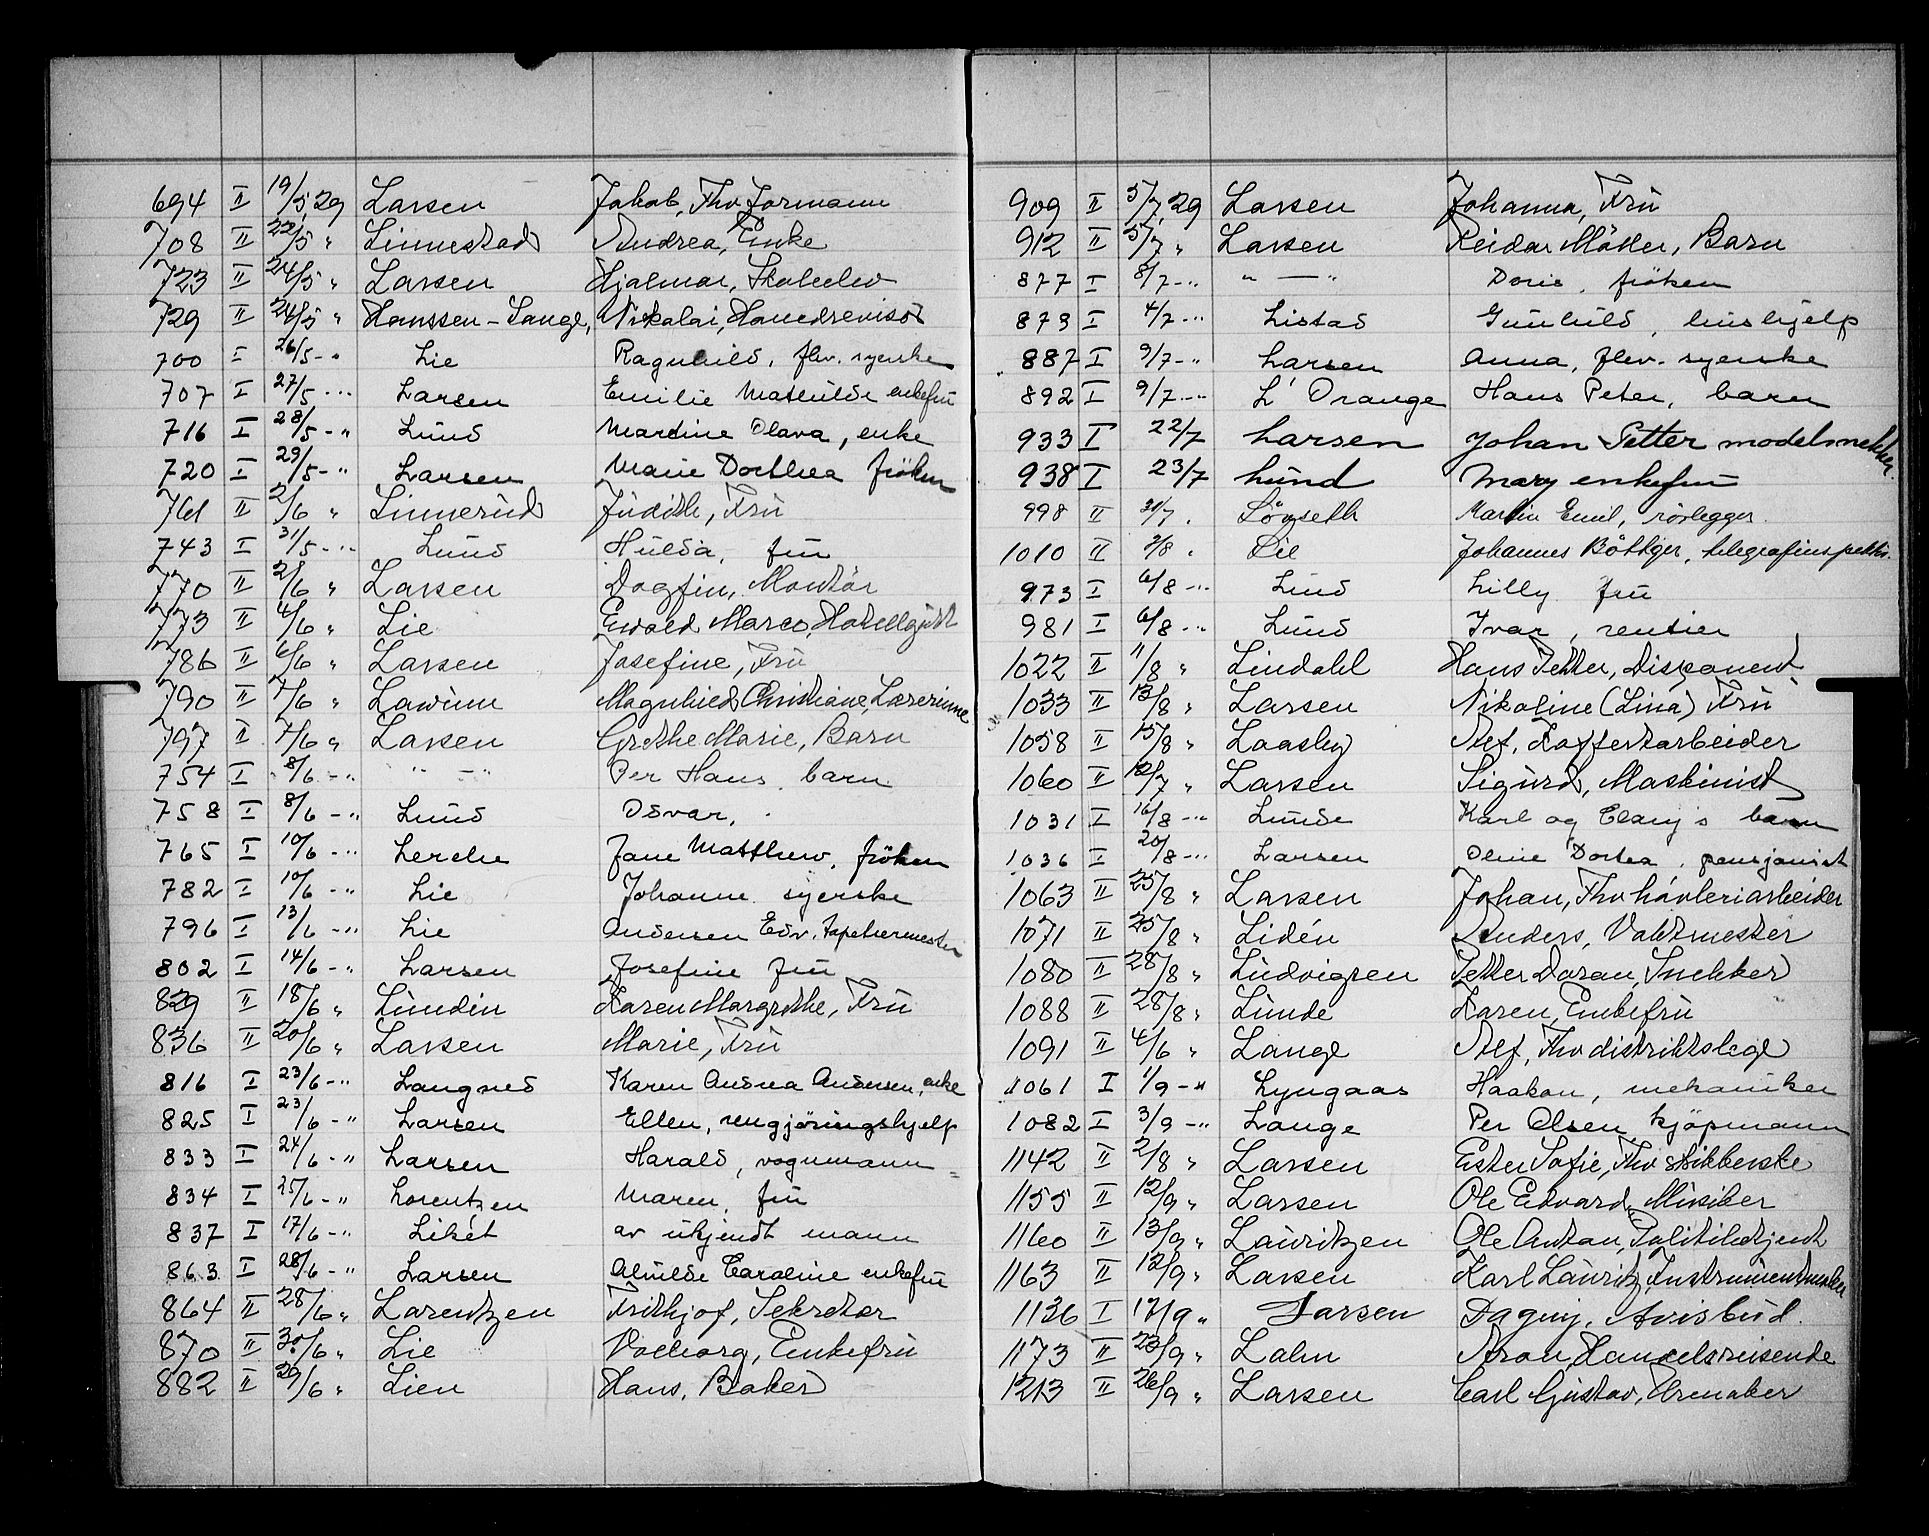 694 II 19/5 29 Larsen Jakob, Fhv formann
708 II 22/5 " Linnestad Andrea, Enke
723 II 24/5 " Larsen Hjalmar, Skoleelev
729 II 24/5 " Hanssen-Lange, Nikolai,
700 I 26/5 -" Lie Ragnhild, flev. syerske
707 I 27/5 -" Larsen Emilie Mathilde enkefru
716 I 28/5 -" Lund Martine Olava, enke
720 I 29/5 -" Larsen Marie Dorthea fröken
761 II 2/6 " Linnerud Judith, Fru
743 I 31/5 -" Lund Hulda, fru
770 II 2/6 " Larsen Dagfin, Montör
773 II 4/6 " Lie Ewald Marco,
786 II 6/6 " Larsen Josefine, Fru
790 II 7/6 " Lawinn Magnhild Christiane, Lærerinne
797 II 7/6 " Larsen Grethe Marie, Barn
754 I 8/6 -" " - " Per Hans, barn
758 I 8/6 -" Lund Odvar,
765 I 10/6 -" Lerche Jane Matthew, fröken
782 I 10/6 -" Lie Johanne syerske
796 I 13/6 -" Lie Andersen Edv. tapetsermester
802 I 14/6 -" Larsen Josefine fru
829 II 18/6 " Lundin Karen Margrethe, Fru
836 II 20/6 " Larsen Marie, Fru
816 I 23/6 -" Langnes Karen Andrea Andersen, enke
825 I 23/6 -" Larsen Ellen, rengjøringshjelp
833 I 24/6 -" Larsen Harald, vognmann
834 I 25/6 -" Lorentzen Maren, fru
837 I 17/6 -" Likét av ukjendt mann
863 I 28/6 -" Larsen Alvilde Caroline enkefru
864 II 28/6 " Larentzen Fritkjof, Sekretær
870 II 30/6 " Lie Valborg, Enkefru
882 II 29/6 " Lien Hans, Baker
909 II 5/7 29 Larsen Johanna, Fru
912 II 5/7 " Larsen Reidar Möller, Barn
877 I 8/7 -" " — " Doris, fröken
879 I 4/7 -" Listad Gunhild, hushjelp
887 I 9/7 -" Larsen Anna, flev. syerske
892 I 9/7 -" L' Orange Hans Peter, barn
933 I 22/7 Larsen Johan Petter modelsnekker
938 I 23/7 Lund Mary enkefru
998 II 31/7 " Lövseth Martin Emil, rørlegger
1010 II 2/8 " Lie Johannes Böttger, telegrafinspektör
973 I 6/8 -" Lund Lilly fru
981 I 6/8 -" Lund Ivar, rentier
1022 II 11/8 " Lindahl Hans Petter, Disponent
1033 II 13/8 " Larsen Nikoline (Lina) Fru
1058 II 15/8 " Laasby Alf, Koffertarbeider
1060 II 12/7 " Larsen Sigurd, Maskinist
1031 I 16/8 -" Lunde Karl og Clary's barn
1036 I 20/8 -" Larsen Oline Dortea, pensjonist
1063 II 25/8 " Larsen Johan, Fhv hövleriarbeider
1071 II 25/8 " Lidén Anders, Valdtmester
1080 II 28/8 " Ludvigsen Petter Doran, Snekker
1088 II 28/8 " Lunde Karen, Enkefru
1091 II 4/6 " Lange Alf, Fhv distriktslege
1061 I 1/9 -" Lyngaas Haakon, mekaniker
1082 I 3/9 -" Lange Per Olsen, kjöpmann
1142 II 2/8 " Larsen Ester Sofie, Fhv strikkerske
1155 II 12/9 " Larsen Ole Edvard, Musiker
1160 II 13/9 " Lauritzen Ole Anton, Politibetjent
1163 II 12/9 " Larsen Karl Lauritz, Instrumentmaker
1136 I 17/9 " Larsen Dagny, Avisbud.
1173 II 23/9 " Lahn Aron, Handelsreisende
1213 II 26/9 " Larsen Carl Gustav, Urmaker